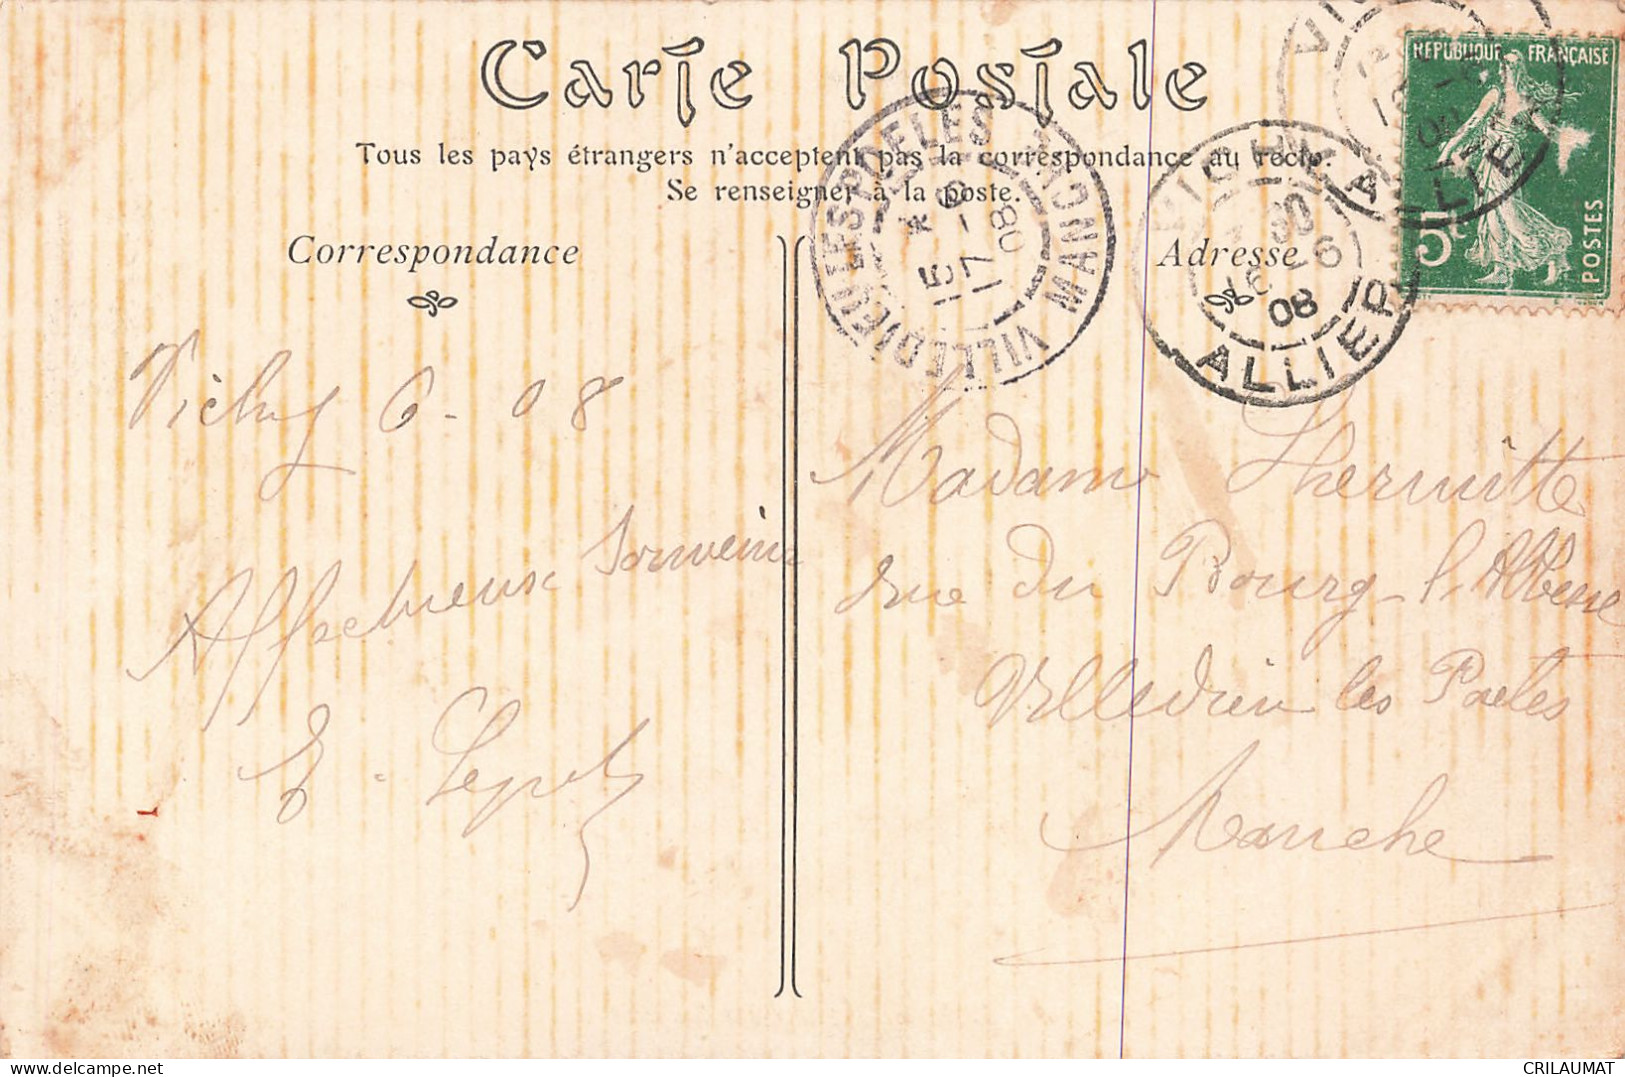 Carte Postale
Tous les pays étrangers n'acceptent pas la correspondance au recto.
Se renseigner à la poste.
Correspondance
Adresse
RÉPUBLIQUE FRANÇAISE
5c
POSTES
VICHY
16 - 6
08
ALLIER
VILLEDIEU LES POELES
MANCHE
15 * 17 - 6
08
Vichy 6 - 08
Affectueux Souvenir
E. 
Madame Lhermitte
rue du Bourg-l'Abbesse
Villedieu les Poeles
Manche
delcampe.net
CRILAUMAT